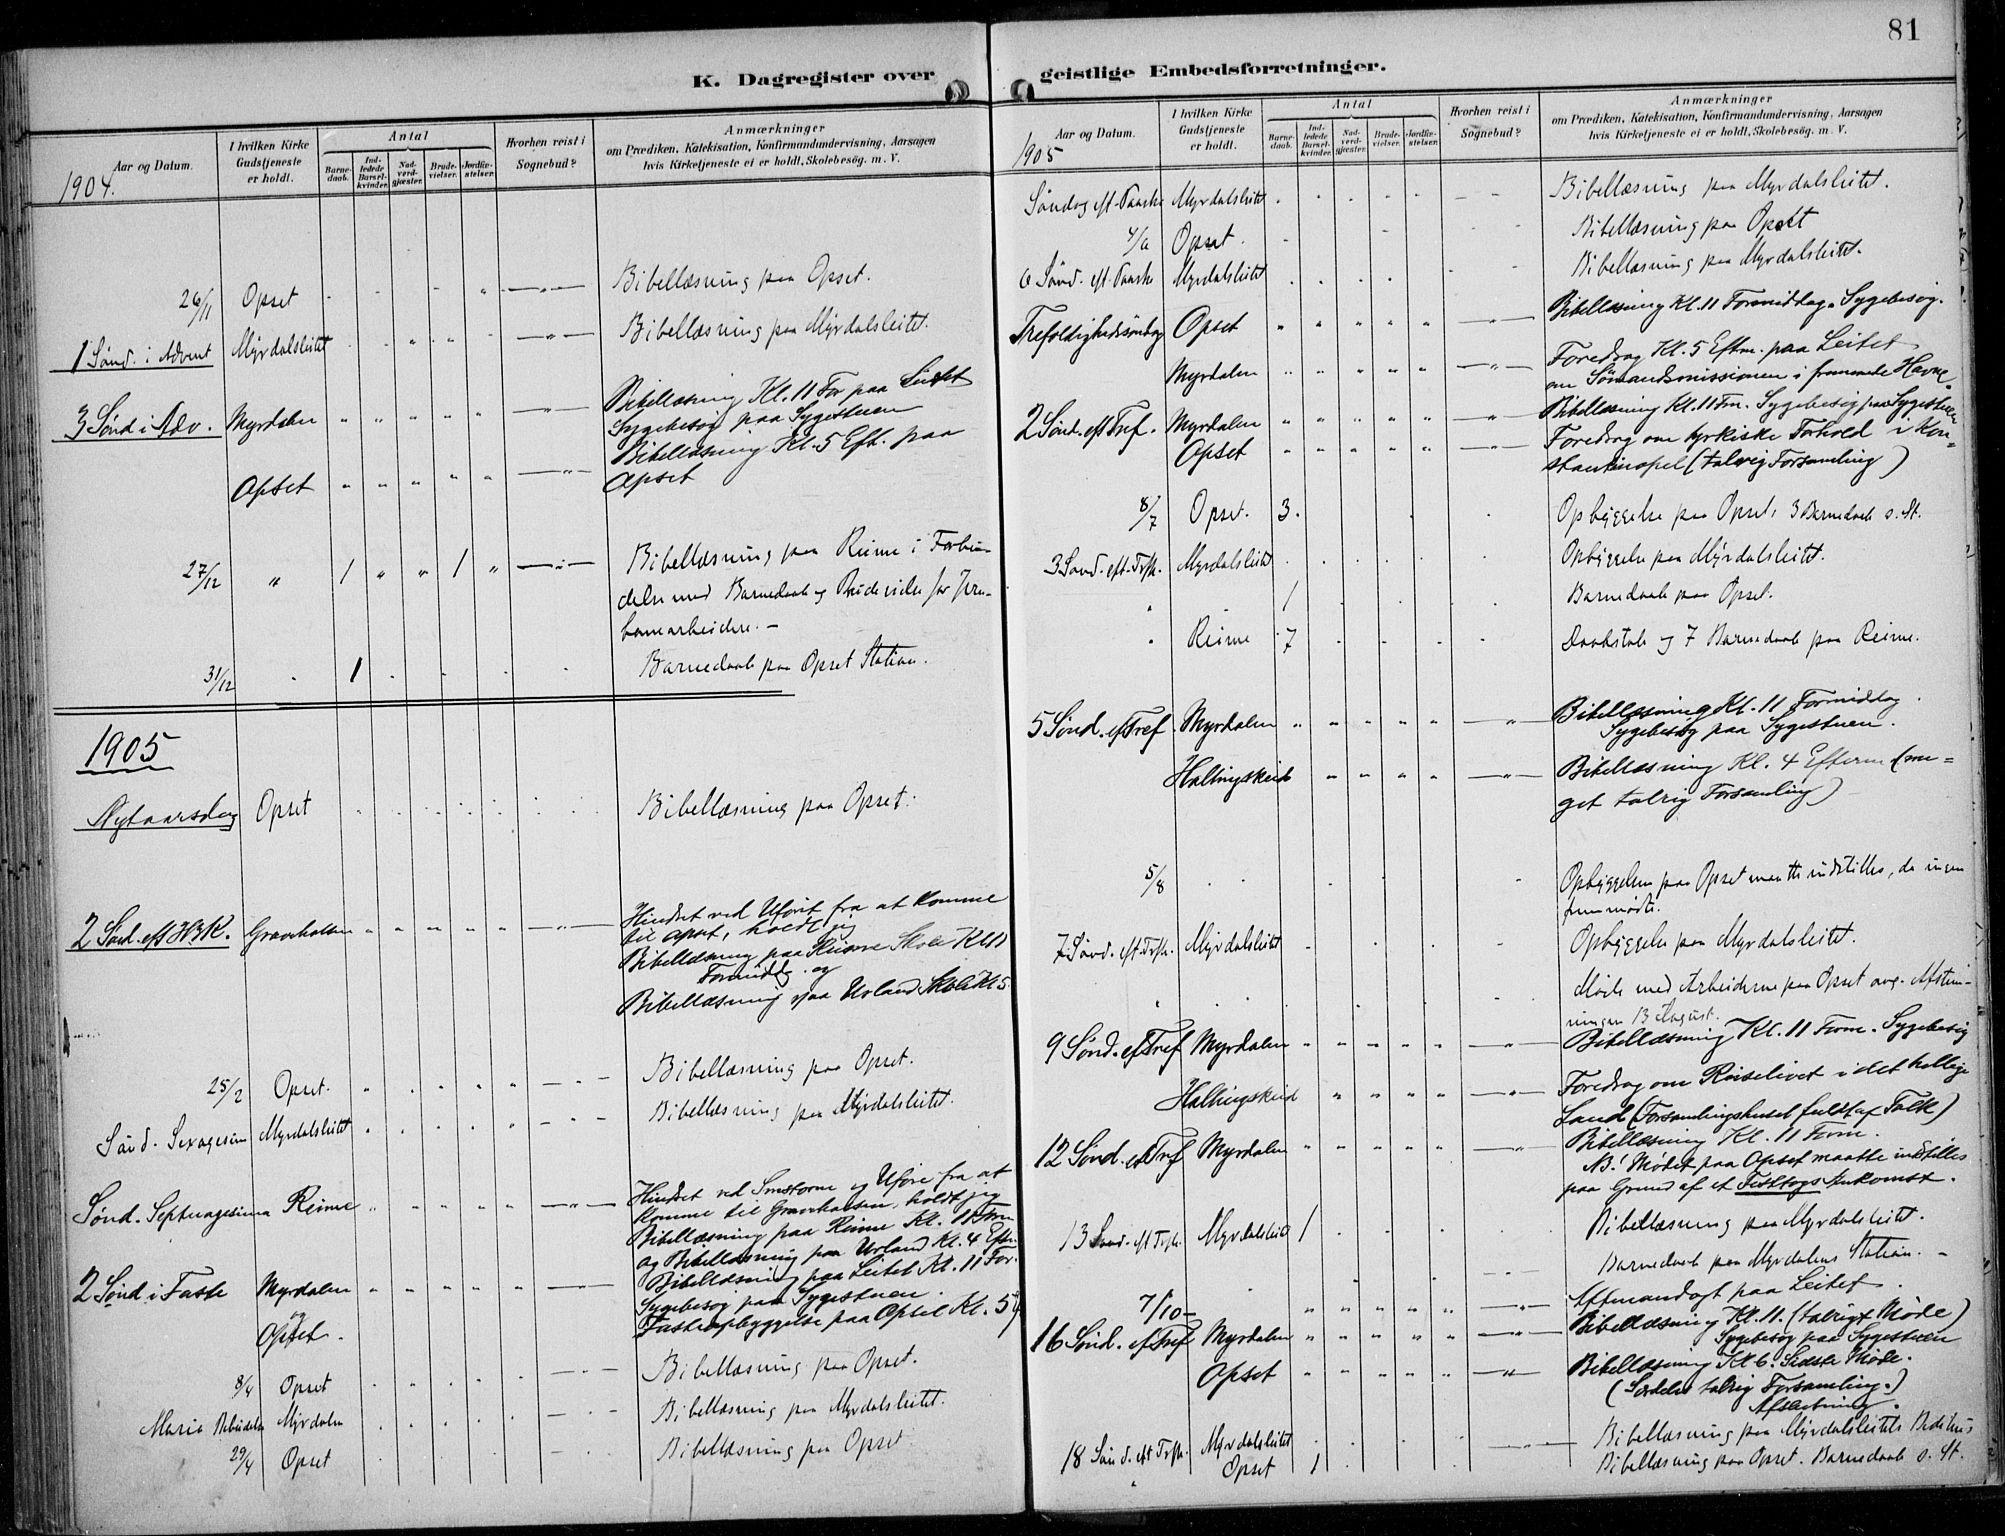 81
K. Dagregister over
geistlige Embedsforretninger.
Aar og Datum.
I hvilken Kirke
Gudstjeneste
er holdt.
Antal
Barne-
daab.
Ind-
ledede
Barsel-
kvinder.
Nad-
verd-
gjæster.
Brude-
vielser.
Jordfæ-
stelser.
Hvorhen reist i
Sognebud?
Anmærkninger
om Prædiken, Katekisation, Konfirmandundervisning, Aarsagen
hvis Kirketjeneste ei er holdt, Skolebesøg. m. V.
1904.
26/11 Opset Bibellæsning paa Opset.
1 Sønd. i Advent Myrdalsleitet Bibellæsning paa Myrdalsleitet.
3 Sønd i Adv. Myrdalen Bibellæsning Kl. 11 For paa Leitet
Sygebesøg paa Sygestuen
Bibellæsning Kl. 5 Eft. paa
Opset Opset
27/12 " 1 " " 1 " Bibellæsning paa Reime i Forbin-
delse med Barnedaab og Brudevielse for Jern-
banearbeidere. –
31/12 1 Barnedaab paa Opset Station.
1905
Nytaarsdag Opset Bibellæsning paa Opset.
2 Sønd. eft H3K. Gravehalsen Hindret ved Uføret fra at komme
til Opset, holdt jeg
Bibellæsning paa Reime Skole Kl 11
Formidd. og
Bibellæsning paa Urland Skole Kl 5.
25/2 Opset. Bibellæsning paa Opset.
Sønd. Sexagesim Myrdalsleitet Bibellæsning paa Myrdalsleitet.
Sønd. Septuagesima Reime Hindret ved Snestorm og Uføre fra at
komme til Gravehalsen, holdt jeg
Bibellæsning paa Reime Kl. 11 Form
og Bibellæsning paa Urland Kl. 4 Eftm.
2 Sønd i Faste Myrdalen Bibellæsning paa Leitet Kl. 11 For.
Sygebesøg paa Sygestuen.
og
Opset. Fasteopbyggelse paa Opset Kl. 5
8/4 Opset Bibellæsning paa Opset.
Maria Bebudelse Myrdalen Bibellæsning paa Myrdalsleitet.
29/4 Opset Bibellæsning paa Opset
Aar og Datum.
I hvilken Kirke
Gudstjeneste
er holdt.
Antal
Barne-
daab.
Ind-
ledede
Barsel-
kvinder.
Nad-
verd-
gjæster.
Brude-
vielser.
Jordfæ-
stelser.
Hvorhen reist i
Sognebud?
Anmærkninger
om Prædiken, Katekisation, Konfirmandundervisning, Aarsagen
hvis Kirketjeneste ei er holdt, Skolebesøg. m. V.
1905
Søndag eft. Paaske Myrdalsleitet Bibellæsning paa Myrdalsleitet.
Opset. Bibellæsning paa Opset
6 Sønd. eft. Paaske Myrdalsleitet Bibellæsning paa Myrdalsleitet.
Trefoldighedssøndag Opset Bibellæsning Kl. 11 Formiddag. Sygebesøg.
Myrdalen Foredrag Kl. 5 Eftm. paa Leitet
om Sømandsmissionen i fremmede Havne
2 Sønd. eft Tref. Myrdalen Bibellæsning Kl. 11 Fm. Sygebesøg paa Sygestuen
Opset Foredrag om tyrkiske Forhold i Kon-
stantinopel (talrig Forsamling)
8/7 Opset. 3. Opbyggelse paa Opset, 3 Barnedaab s. St.
3 Sønd. eft. Trfh. Myrdalsleitet Opbyggelse paa Myrdalsleitet.
1 Barnedaab paa Opset.
" Reime 7 Daabstale og 7 Barnedaab paa Reime.
5 Sønd. eft Tref Myrdalen Bibellæsning Kl. 11 Formiddag
Sygebesøg paa Sygestuen.
Hallingskeid Bibellæsning Kl. 4 Efterm (me-
get talrig Forsamling)
5/8 Opbyggelsen paa Opset maatte indstilles, da ingen
fremmødte.
7 Sønd. eft Trfh. Myrdalsleitet Opbyggelse paa Myrdalsleitet.
Møde med Arbeiderne paa Opset ang. Afstem-
ningen 13 August.
9 Sønd. eft Tref Myrdalen Bibellæsning Kl. 11 Form. Sygebesøg
Hallingskeid Foredrag om Reiselivet i det hellige
Land (Forsamlingshuset fuldt af Folk)
12 Sønd. eft Tref Myrdalen Bibellæsning Kl. 11 Form.
NB! Mødet paa Opset maatte indstilles
paa Grund af et Festtogs Ankomst.
13 Sønd. eft Trfh. Myrdalsleitet 1 Bibellæsning paa Myrdalsleitet.
Barnedaab paa Myrdalens Station. –
7/10 Aftenandagt paa Leitet.
16 Sønd. eft Tref Myrdalen Bibellæsning Kl. 11. (talrigt Møde)
Sygebesøg paa Sygestuen
Opset Bibellæsning Kl 6. Sidste Møde.
(Særdeles talrig Forsamling.)
Afslutning.
18 Sønd. eft Trfh. Myrdalsleitet Bibellæsning paa Myrdalsleitets Bedehus
" Opset 1 Bibellæsning paa Opset. Barnedaab s. St.